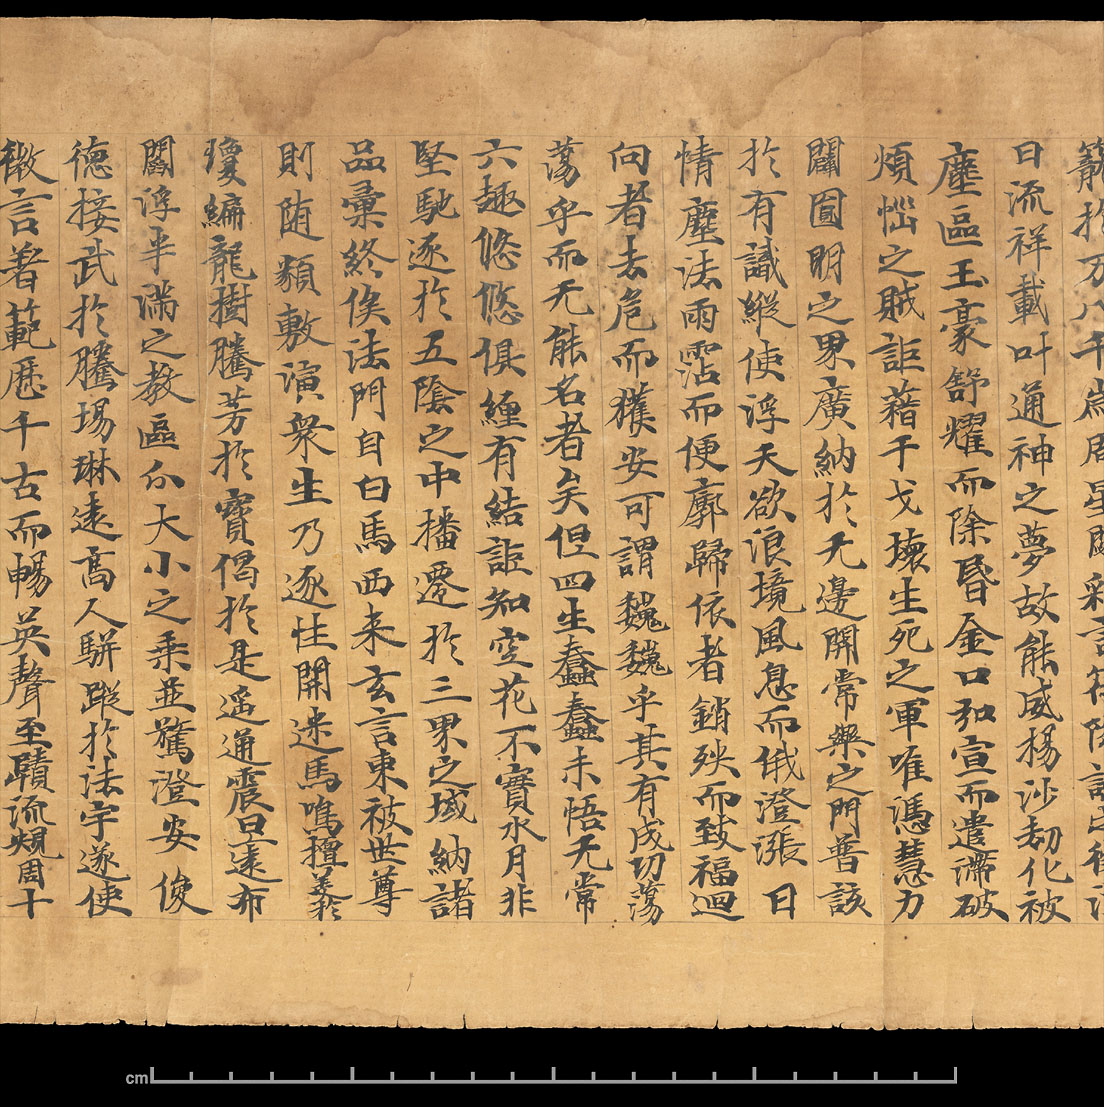 籠於万八千歲周星闕彩言符陰
日流祥載叶通神之夢故能威楊沙劫化被
塵區玉豪舒耀而除昏金口和宣而遣滯破
煩惱之賊詎藉干戈壞生死之軍唯憑慧力
闢圎明之果廣納於无邊開常樂之門普該
於有識縱使浮天欲浪境風息而俄澄漲日
情塵法雨霑而便廓歸依者銷殃而致福迴
向者去危而獲安可謂巍巍乎其有成功蕩
蕩乎而无能名者矣但四生蠢蠢未悟无常
六趣悠悠俱纏有結詎知空花不實水月非
堅馳逐於五陰之中播遷於三界之域納諸
品彙終俟法門自白馬西来玄言東被世尊
則随類敷演衆生乃逐性開迷馬鳴擅美於
瓊編龍樹騰芳於寶偈於是遥通震旦遠布
閻浮半滿之教區分大小之乘並騖澄安俊
德接武於騰場琳遠高人駢蹤於法宇遂使
微言著範歷千古而暢英聲至賾流規周十